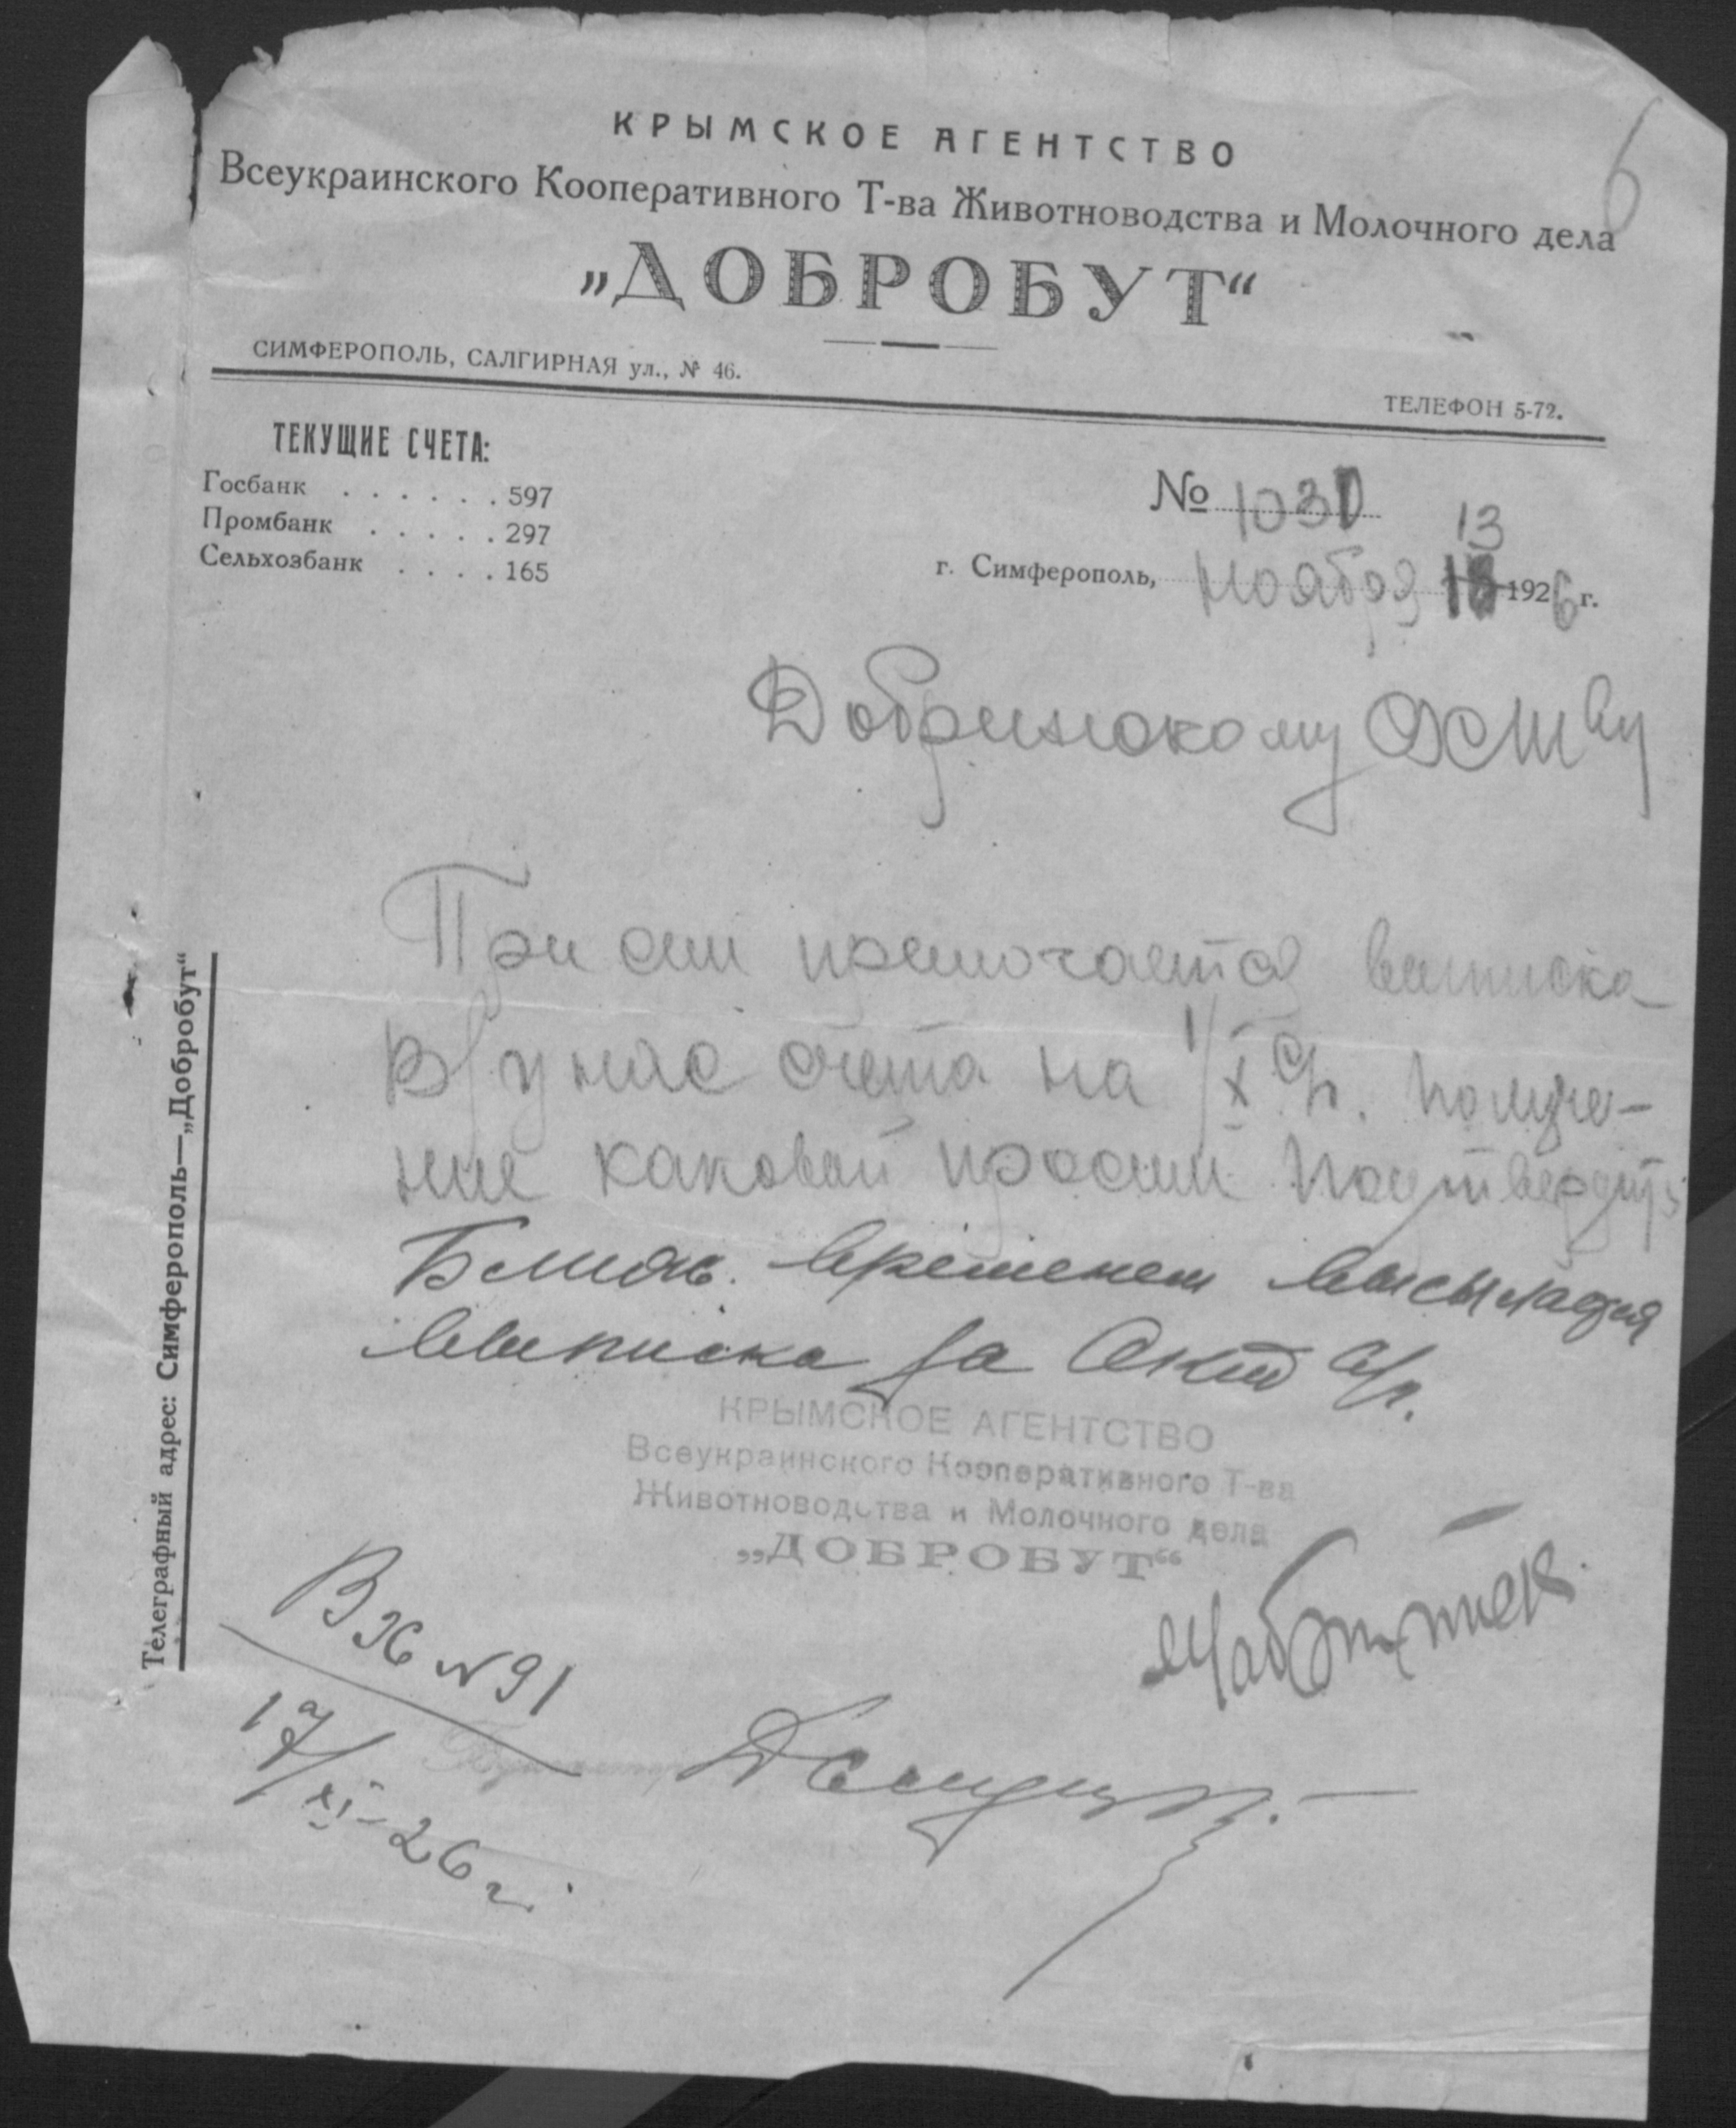 6
КРЫМСКОЕ АГЕНТСТВО
Всеукраинского Кооперативного Т-ва Животноводства и Молочного дела
„ДОБРОБУТ“
СИМФЕРОПОЛЬ, САЛГИРНАЯ ул., № 46.
ТЕЛЕФОН 5-72.
ТЕКУЩИЕ СЧЕТА:
Госбанк . . . . . . 597
Промбанк . . . . . 297
Сельхозбанк . . . . 165
№ 1030
13
г. Симферополь, Ноября 1926 г.
Добринскому
При сем препрочается выписка
В/ у нас счета на 1/X с/г. Получе-
ние каковой просим подтвердить
Ближ. временем высылается
выписка за Окт с/г.
КРЫМСКОЕ АГЕНТСТВО
Всеукраинского Кооперативного Т-ва
Животноводства и Молочного дела
„ДОБРОБУТ“
Вх № 91
17/XI-26 г.
Телеграфный адрес: Симферополь—„Добробут“